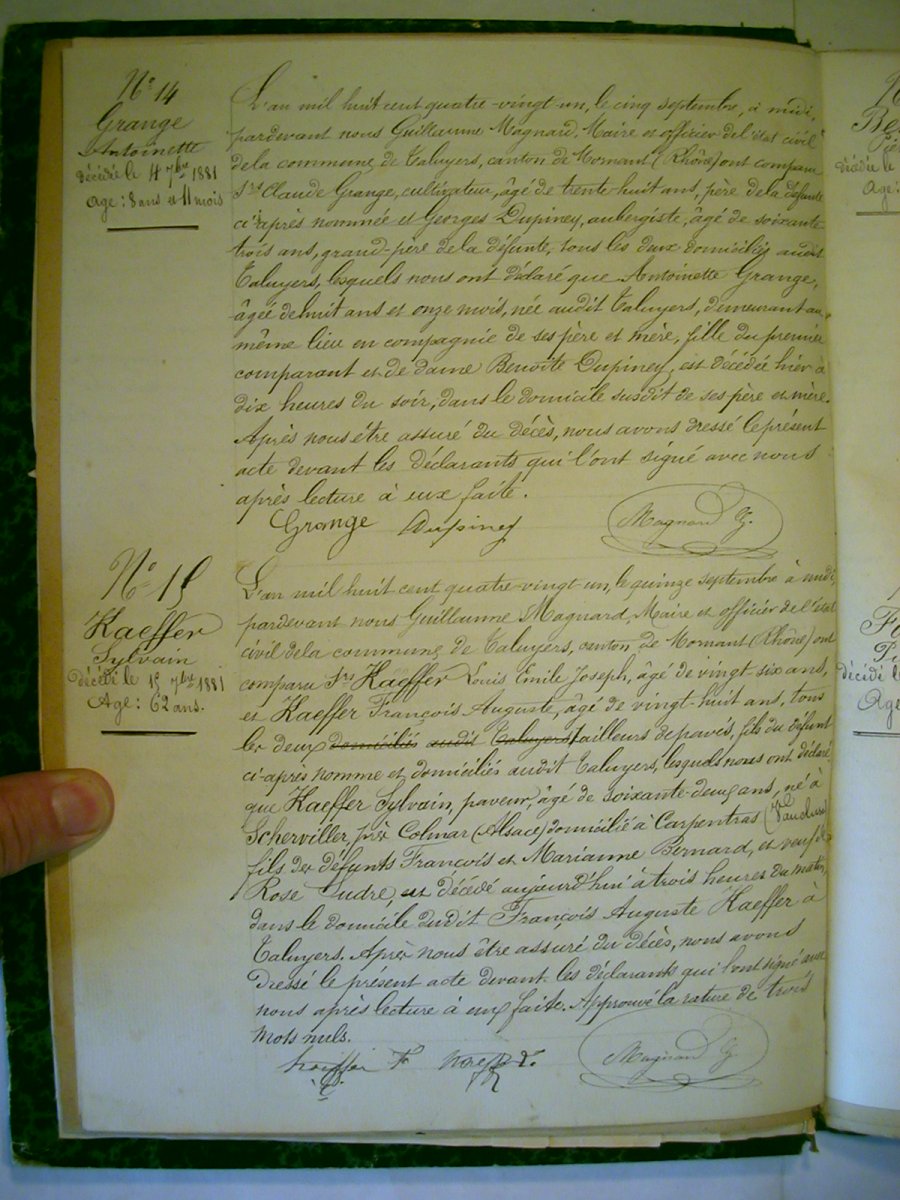 N° 14
Grange
Antoinette
décédée le 4 7bre 1881
Age: 8 ans et 11 mois
L'an mil huit cent quatre-vingt-un, le cinq septembre, à midi,
pardevant nous Guillaume Magnard, Maire et officier de l'état civil
de la commune de Taluyers, canton de Mornant (Rhône) ont comparu
Srs Claude Grange, cultivateur, âgé de trente-huit ans, père de la défunte
ci-après nommée et Georges Dupiney, aubergiste, âgé de soixante
trois ans, grand-père de la défunte, tous les deux domiciliés audit
Taluyers, lesquels nous ont déclaré que Antoinette Grange,
âgée de huit ans et onze mois, née audit Taluyers, demeurant au
même lieu en compagnie de ses père et mère, fille du premier
comparant et de dame Benoîte Dupiney, est décédée hier à
dix heures du soir, dans le domicile susdit de ses père et mère.
Après nous être assuré du décès, nous avons dressé le présent
acte devant les déclarants qui l'ont signé avec nous
après lecture à eux faite.
Grange Dupiney Magnard G.
N° 15
Kaeffer
Sylvain
décédé le 15 7bre 1881
Age: 62 ans.
L'an mil huit cent quatre-vingt-un, le quinze septembre à midi,
pardevant nous Guillaume Magnard, Maire et officier de l'état
civil de la commune de Taluyers, canton de Mornant (Rhône) ont
comparu Srs Kaeffer Louis Emile Joseph, âgé de vingt-six ans,
et Kaeffer François Auguste, âgé de vingt-huit ans, tous
les deux domiciliés audit Taluyers tailleurs de pavés, fils du défunt
ci-après nommé et domiciliés audit Taluyers, lesquels nous ont déclaré
que Kaeffer Sylvain, paveur, âgé de soixante-deux ans, né à
Scherviller, près Colmar (Alsace) domicilié à Carpentras (Vaucluse)
fils des défunts François et Marianne Bernard, et veuf de
Rose Tudre, est décédé aujourd'hui à trois heures du matin,
dans le domicile dudit François Auguste Kaeffer à
Taluyers. Après nous être assuré du décès, nous avons
dressé le présent acte devant les déclarants qui l'ont signé avec
nous après lecture à eux faite. Approuvé la rature de trois
mots nuls.
Magnard G.